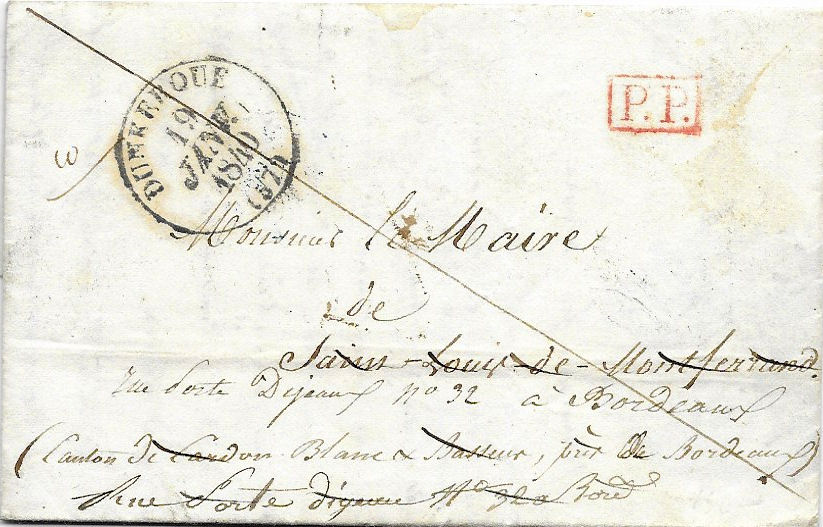 DUNKERQUE
19
JANV.
1840
(57)
P.P.
Monsieur le Maire
de
Saint-Louis-de-Montferrand.
rue Porte Dijeaux no 32 à Bordeaux
(Canton de Carbon Blanc & Bassens, près de Bordeaux)
Rue Porte dijeaux